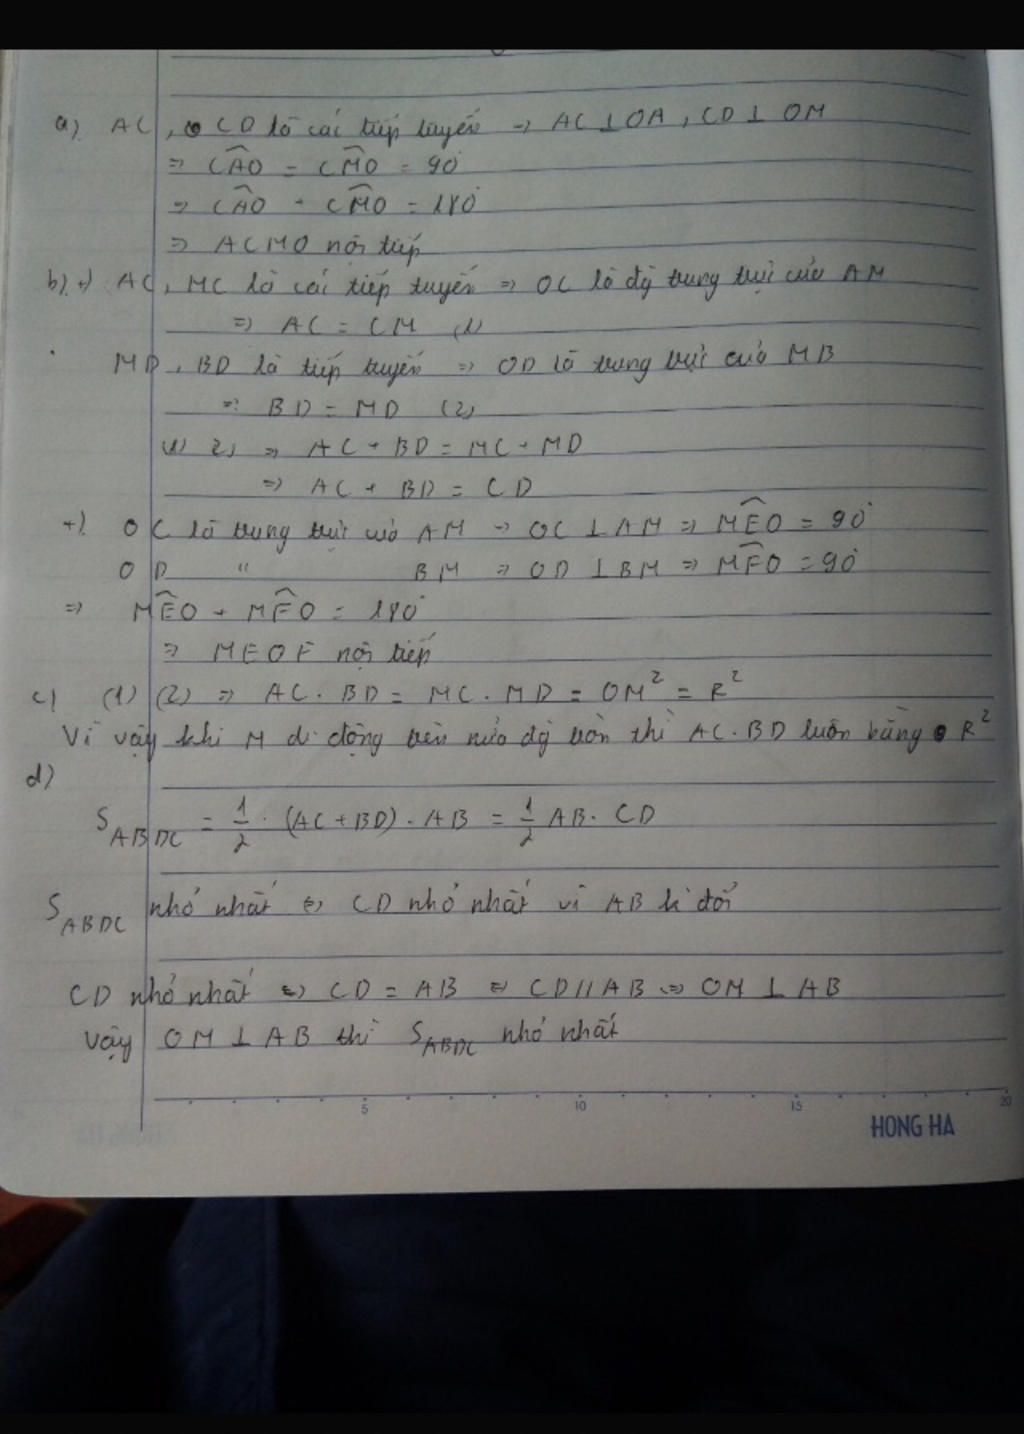 a) AC, CD là các tiếp tuyến → AC ⊥ OA, CD ⊥ OM
⇒ CAO = CMO = 90°
⇒ CAO + CMO = 180°
⇒ ACMO nội tiếp
b) +) AC, MC là các tiếp tuyến ⇒ OC là đg trung trực của AM
⇒ AC = CM (1)
MD, BD là tiếp tuyến ⇒ OD là trung trực của MB
⇒ BD = MD (2)
(1) (2) ⇒ AC + BD = MC + MD
⇒ AC + BD = CD
+) OC là trung trực của AM → OC ⊥ AM ⇒ MEO = 90°
OD " BM ⇒ OD ⊥ BM ⇒ MFO = 90°
⇒ MEO + MFO = 180°
⇒ MEOF nội tiếp
c) (1) (2) ⇒ AC . BD = MC . MD = OM² = R²
Vì vậy khi M di động trên nửa đg tròn thì AC . BD luôn bằng R²
d)
S_ABDC = 1/2 . (AC + BD) . AB = 1/2 AB . CD
S_ABDC nhỏ nhất ⇔ CD nhỏ nhất vì AB k đổi
CD nhỏ nhất ⇔ CD = AB ⇔ CD // AB ⇔ OM ⊥ AB
Vậy OM ⊥ AB thì S_ABDC nhỏ nhất
5 10 15 20
HONG HA